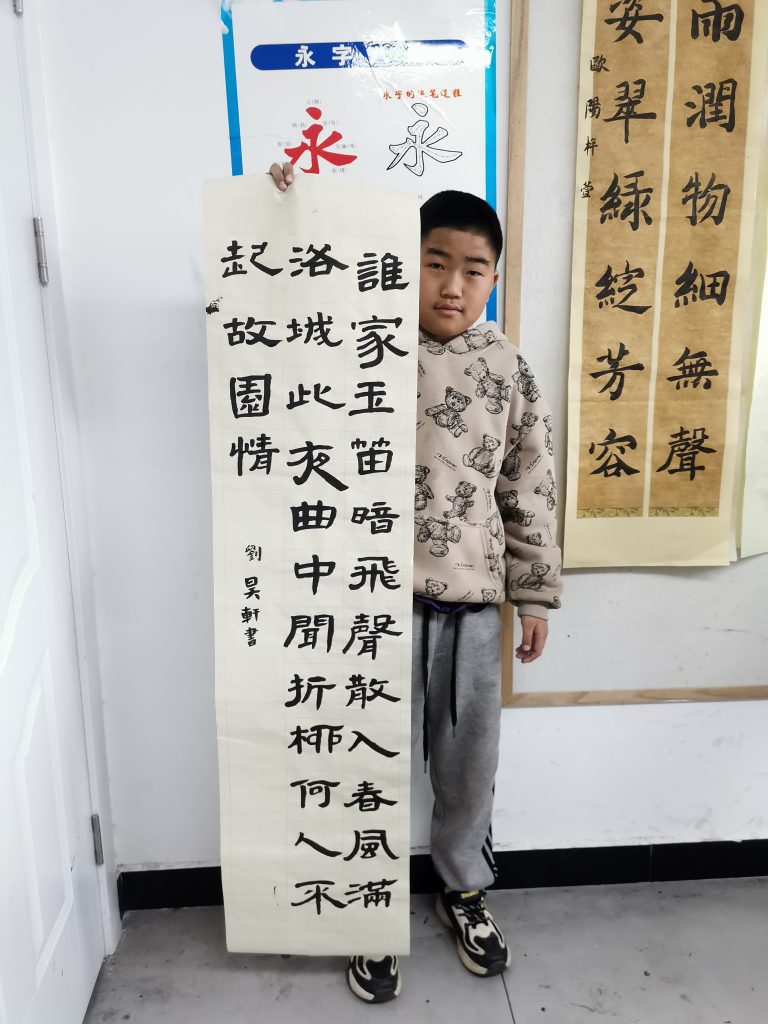 永字
永字的运笔过程
永
永
誰家玉笛暗飛聲散入春風滿
洛城此夜曲中聞折柳何人不
起故園情
劉昊軒書
雨潤物細無聲
姿翠緑綻芳容
歐陽梓萱